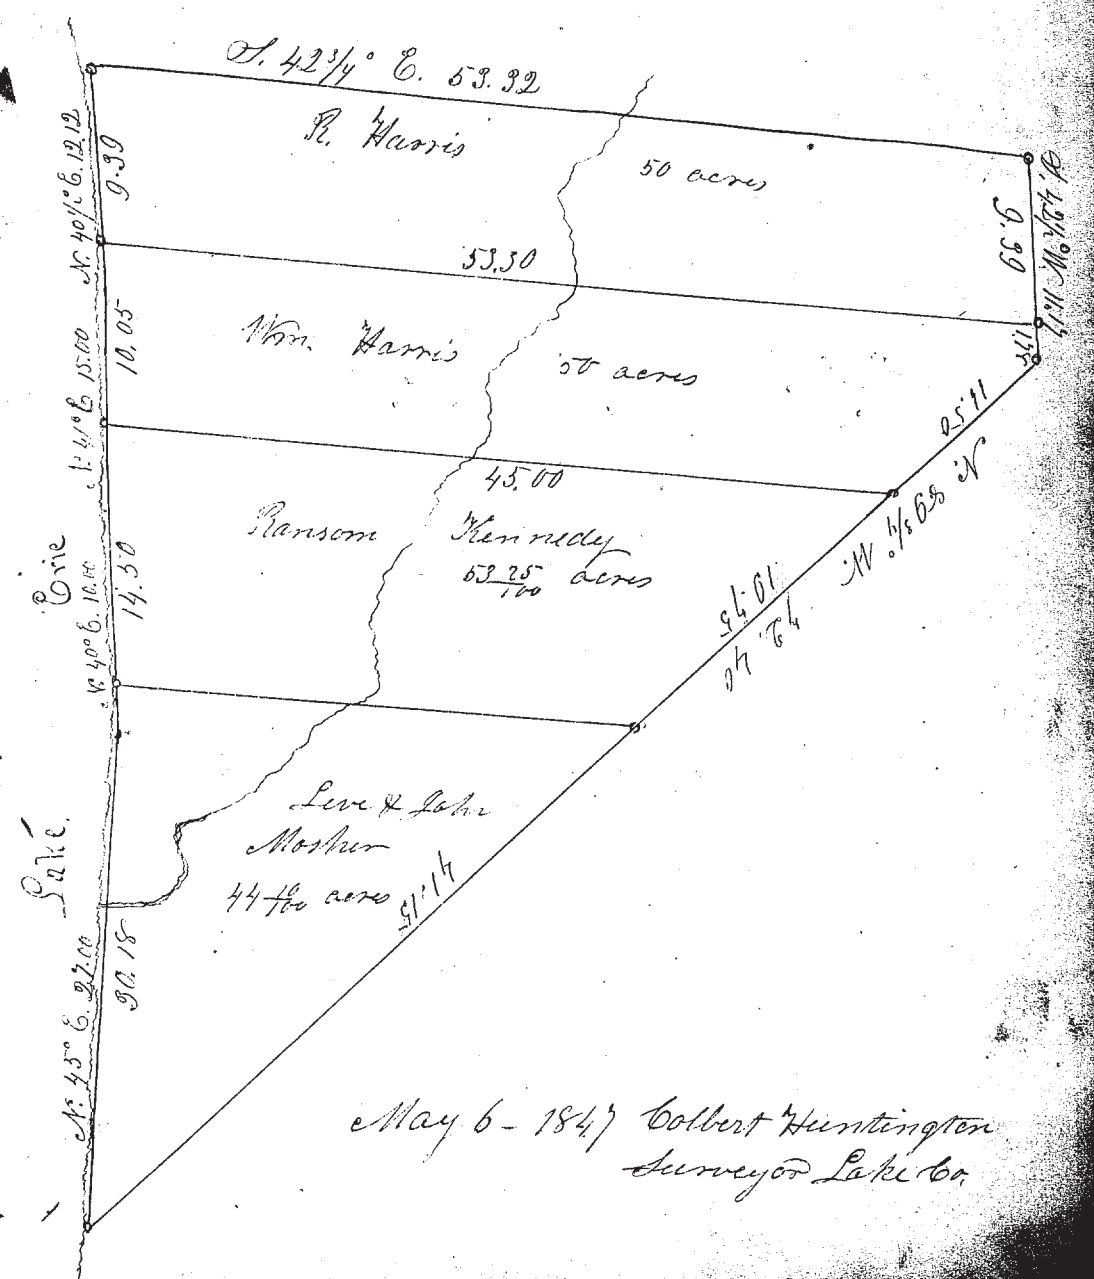 S. 42 3/4° E. 53.32
R. Harris
50 acres
N. 40 1/2° E. 12.12
9.39
9.39
53.30
Wm. Harris
50 acres
N. 41° E 15.00
10.05
11.50
45.00
N. 89 3/4° W.
Ransom Kennedy
53 25/100 acres
Lake Erie
N. 40° E. 16.00
14.50
19.75
72.40
Leve & John
Mosher
44 10/100 acres
41.15
N. 45° E. 27.00
30.18
May 6 - 1847 Colbert Huntington
Surveyor Lake Co.